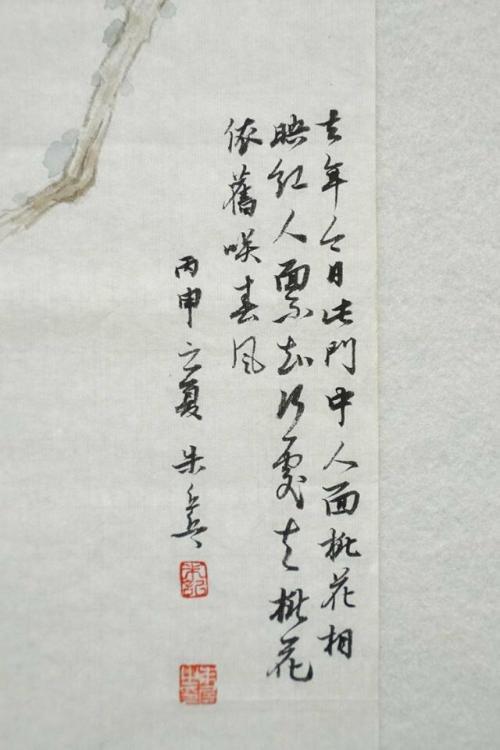 去年今日此門中人面桃花相
映红人面不知何處去桃花
依舊咲春风
丙申之夏 朱